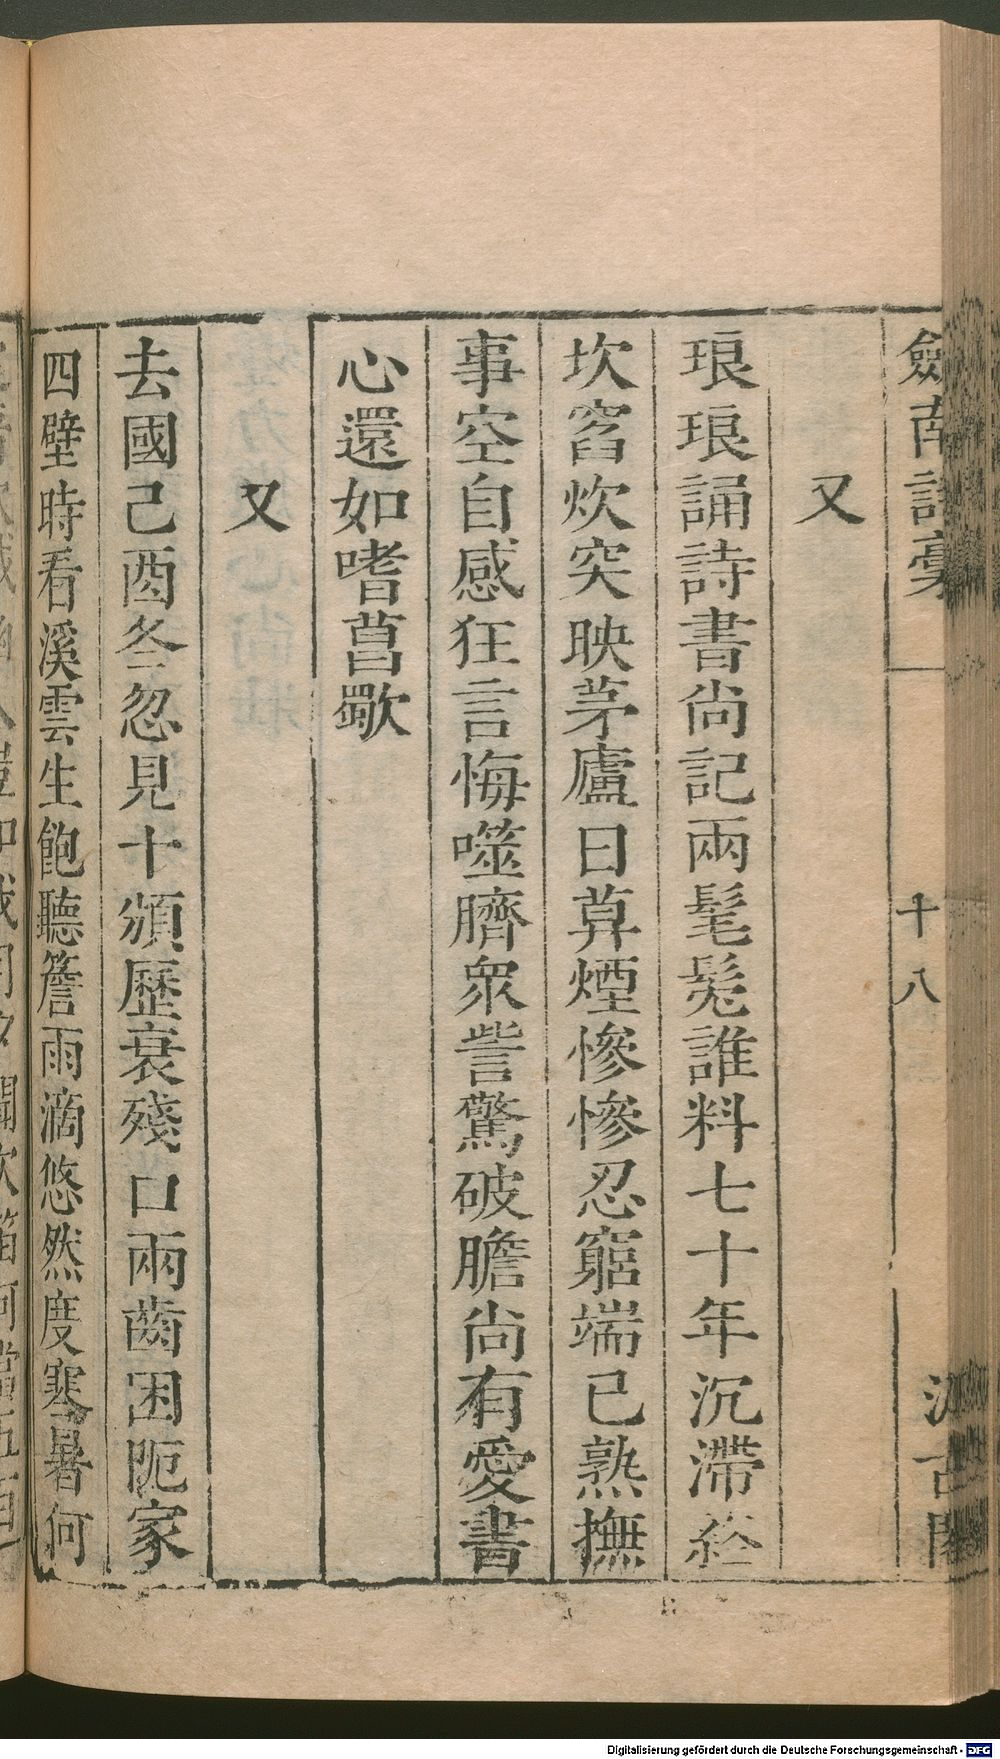 劒南詩稾
十八
汲古閣
又
琅琅誦詩書尚記兩髦髧誰料七十年沉滯終
坎窞炊突映茅廬日算煙慘慘忍窮端已熟撫
事空自感狂言悔噬臍衆訾驚破膽尚有愛書
心還如嗜菖歜
又
去國己酉冬忽見十頻歷衰殘口兩齒困阨家
四壁時看溪雲生飽聽簷雨滴悠然度寒暑何
Digitalisierung gefördert durch die Deutsche Forschungsgemeinschaft - DFG